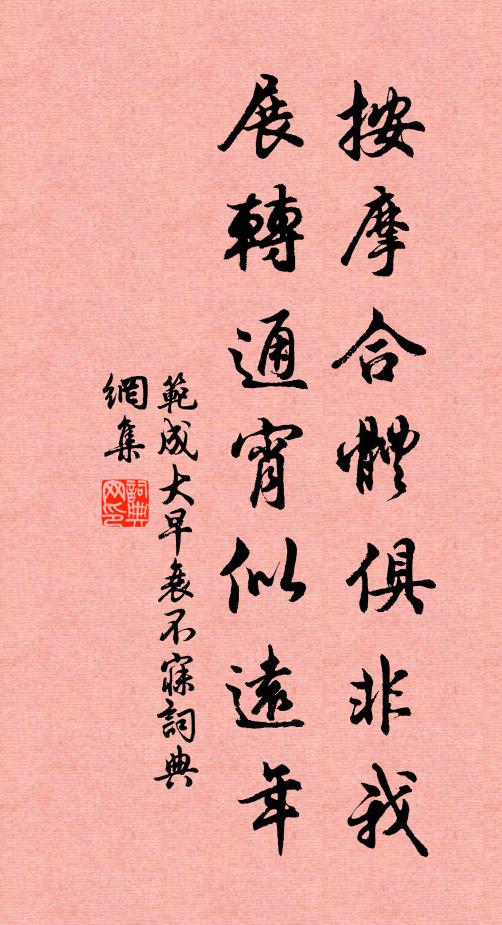 按摩合體俱非我
展轉通宵似遠年
範成大早衰不寐詞典
網集
詞典
网印